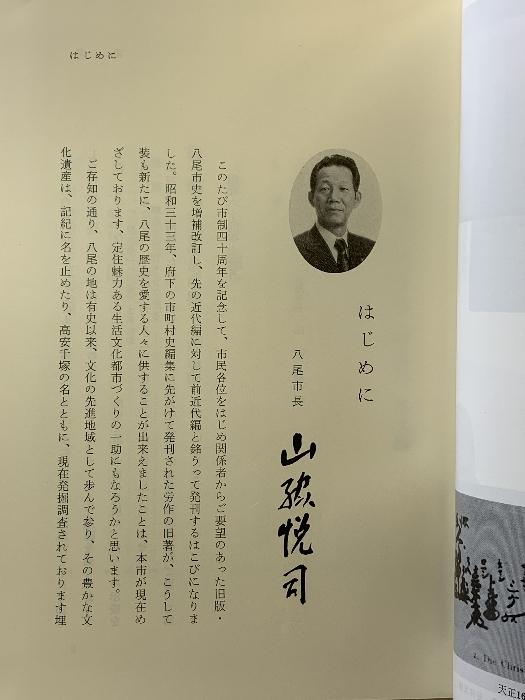 はじめに
はじめに
八尾市長
山脇悦司
このたび市制四十周年を記念して、市民各位をはじめ関係者からご要望のあった旧版・
八尾市史を増補改訂し、先の近代編に対して前近代編と銘うって発刊するはこびになりま
した。昭和三十三年、府下の市町村史編集に先がけて発刊された労作の旧著が、こうして
装も新たに、八尾の歴史を愛する人々に供することが出来えましたことは、本市が現在め
ざしております、定住魅力ある生活文化都市づくりの一助にもなろうかと思います。
ご存知の通り、八尾の地は有史以来、文化の先進地域として歩んで参り、その豊かな文
化遺産は、記紀に名を止めたり、高安千塚の名とともに、現在発掘調査されております埋
2. The Chris
天正16